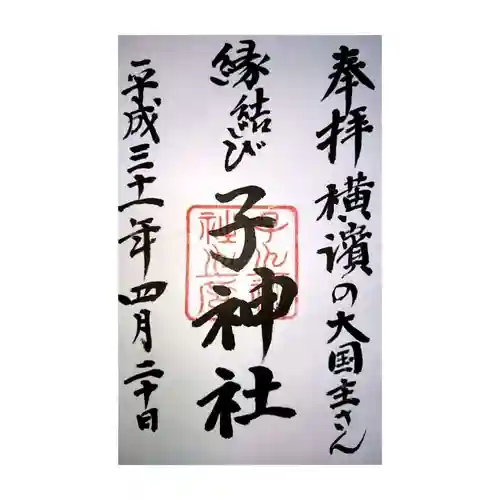 奉拝 横濱の大国主さん
縁結び 子神社
平成三十一年四月二十日